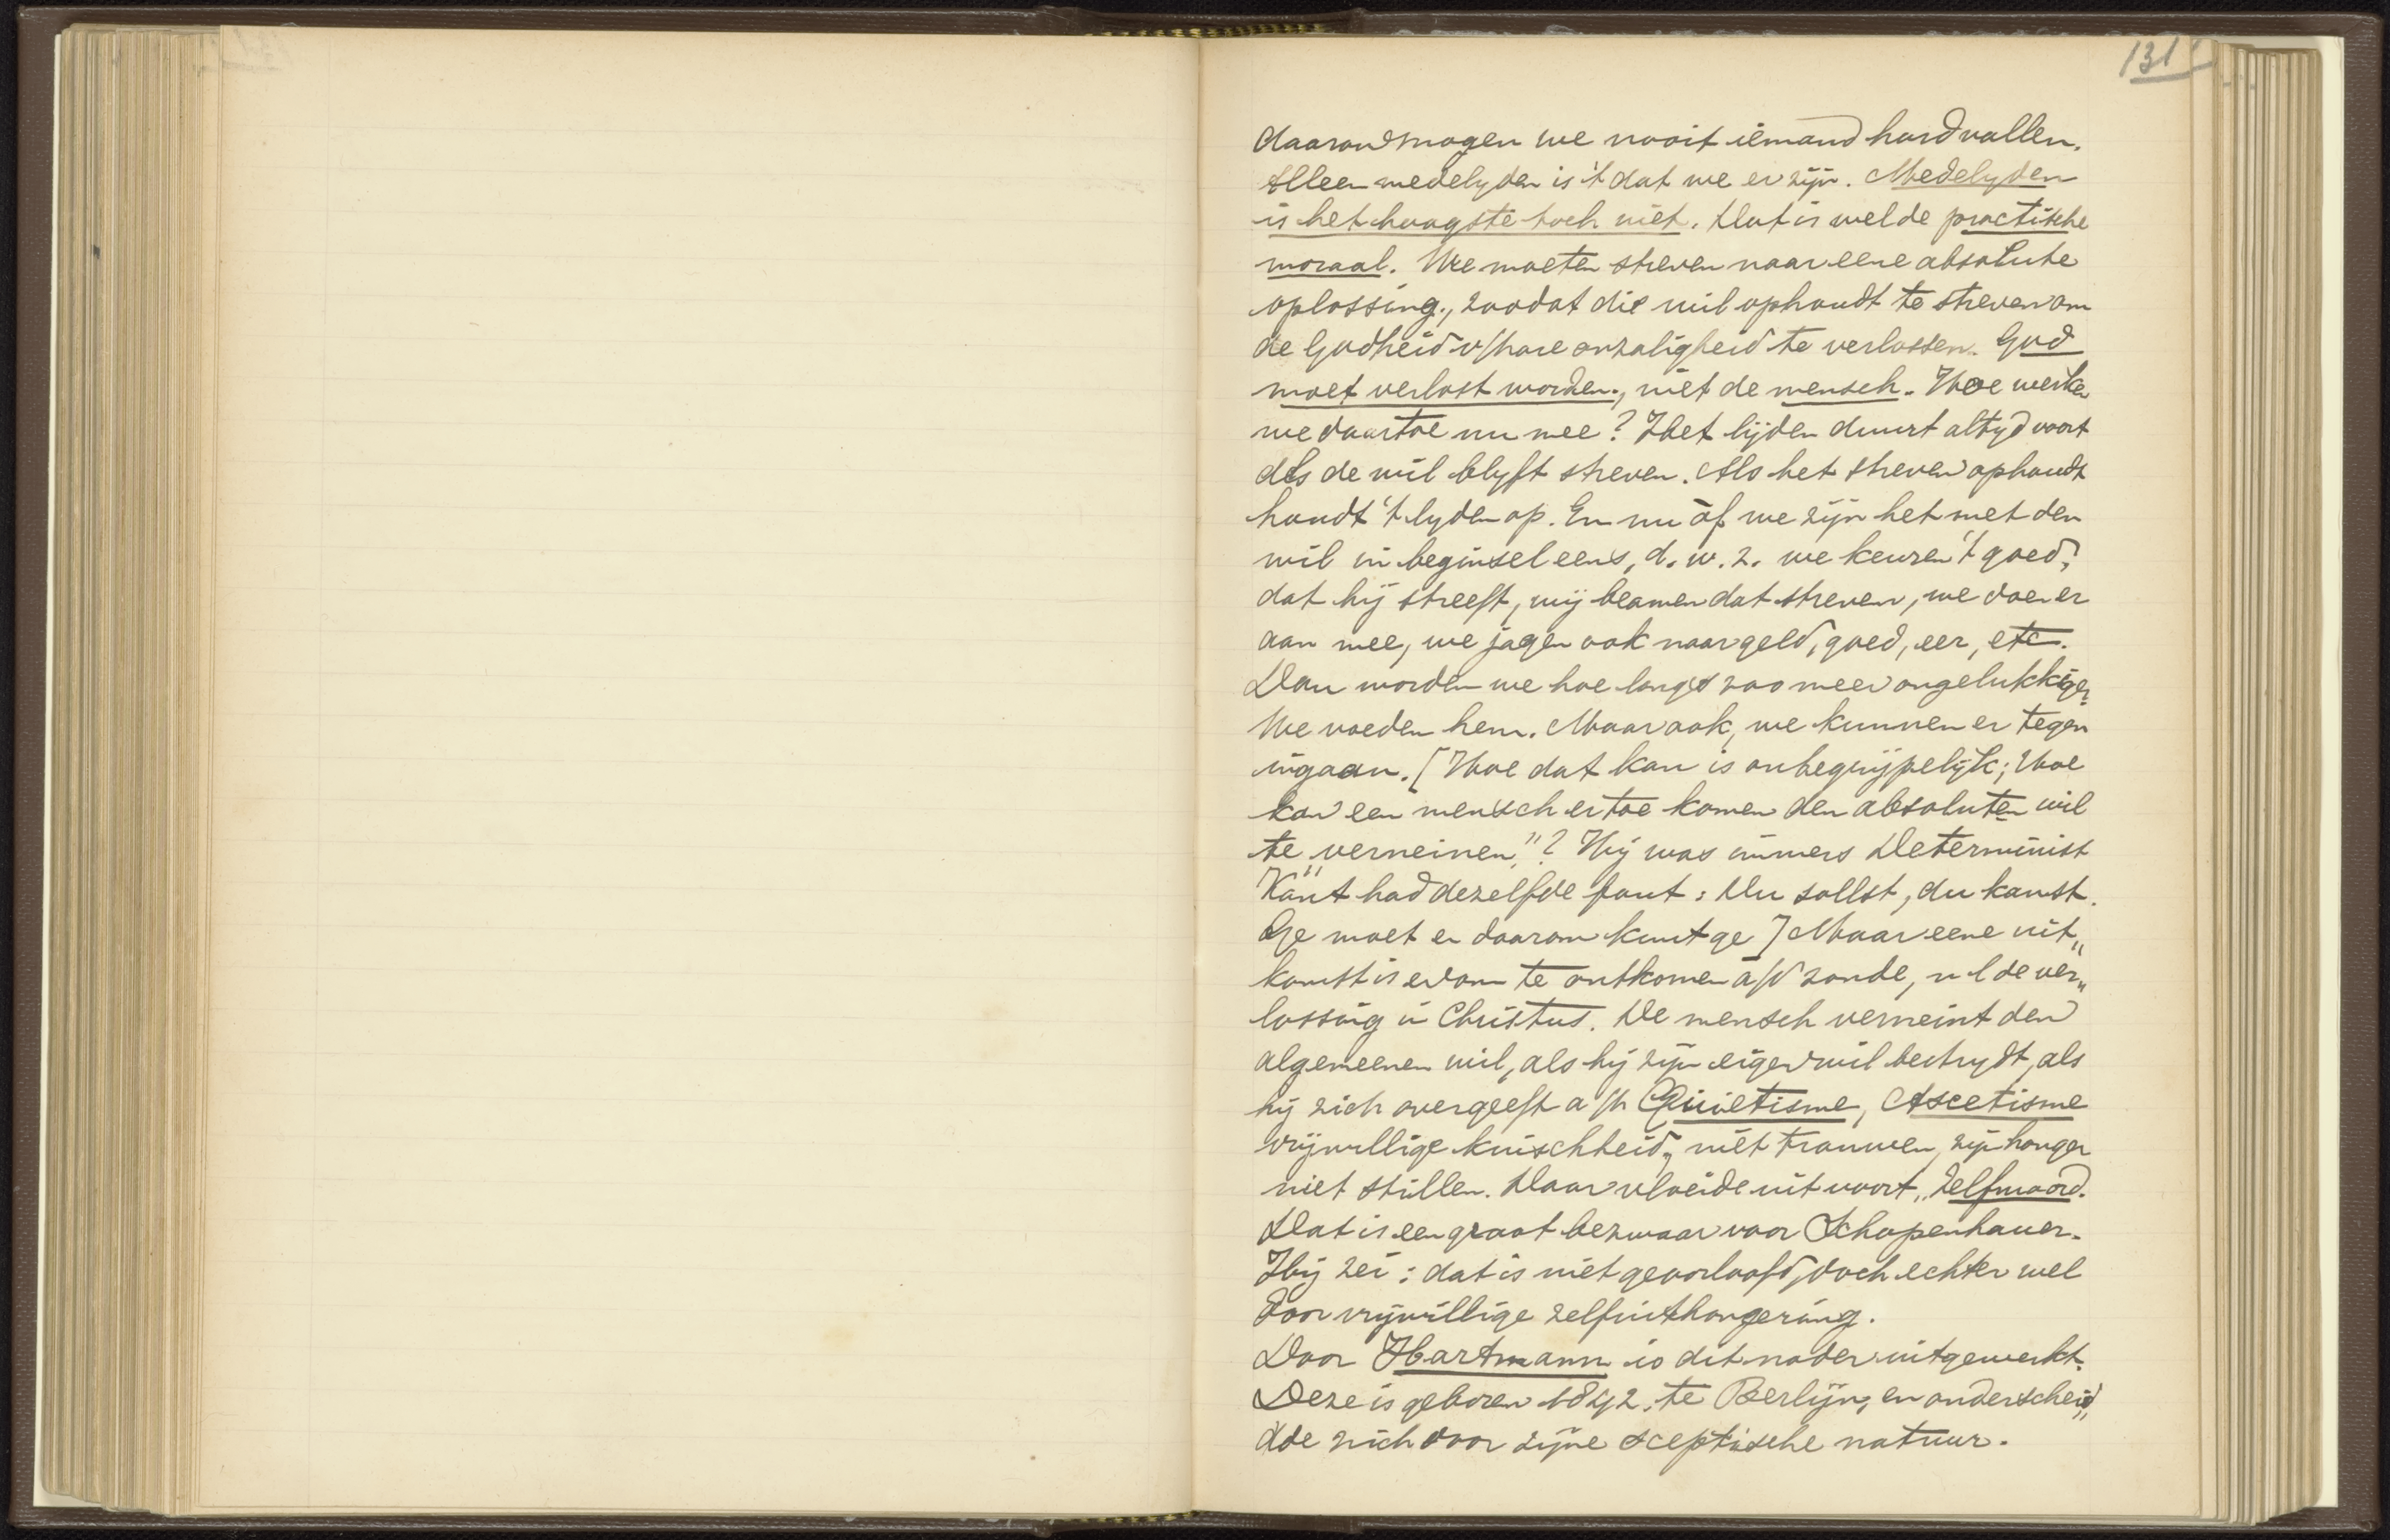 131
daarom mogen we nooit iemand hard vallen.
Alleen medelyden is 't dat we er zijn. Medelyden
is het hoogste toch niet. Dat is wel de practische
moraal. We moeten streven naar eene absolute
oplossing, zoodat die wil ophoudt te streven om
de Godheid v/hare onzaligheid te verlossen. God
moet verlost worden, niet de mensch. Hoe werken
we daartoe nu mee? Het lijden duurt altyd voort
als de wil blyft streven. Als het streven ophoudt
houdt 't lyden op. En nu óf we zijn het met den
wil in beginsel eens, d.w.z. we keuren 't goed,
dat hij streeft, wij beamen dat streven, we doen er
aan mee, we jagen ook naar geld, goed, eer, etc.
Dan worden we hoe langer zoo meer ongelukkiger.
We voeden hem. Maar ook, we kunnen er tegen
ingaan. [Hoe dat kan is onbegrijpelijk; Hoe
kan een mensch ertoe komen den absoluten wil
te "verneinen"? Hij was immers Determinist
Kant had dezelfde fout: Du sollst, du kannst.
Ge moet en daarom kunt ge] Maar eene uit„
komst is er om te ontkomen a/d zonde, nl de ver„
lossing in Christus. De mensch verneint den
algemeenen wil, als hij zijn eigen wil bestrydt, als
hij zich overgeeft a/h Quietisme, Ascetisme
vrijwillige kuischheid, niet trouwen, zijn honger
niet stillen. Daar vloeide uit voort, Zelfmoord.
Dat is een groot bezwaar voor Schopenhauer.
Hij zei: dat is niet geoorloofd, doch echter wel
door vrijwillige zelfuithongering.
Door Hartmann is dit nader uitgewerkt.
Deze is geboren 1842, te Berlijn, en onderscheid„
dde zich door zijne sceptische natuur.